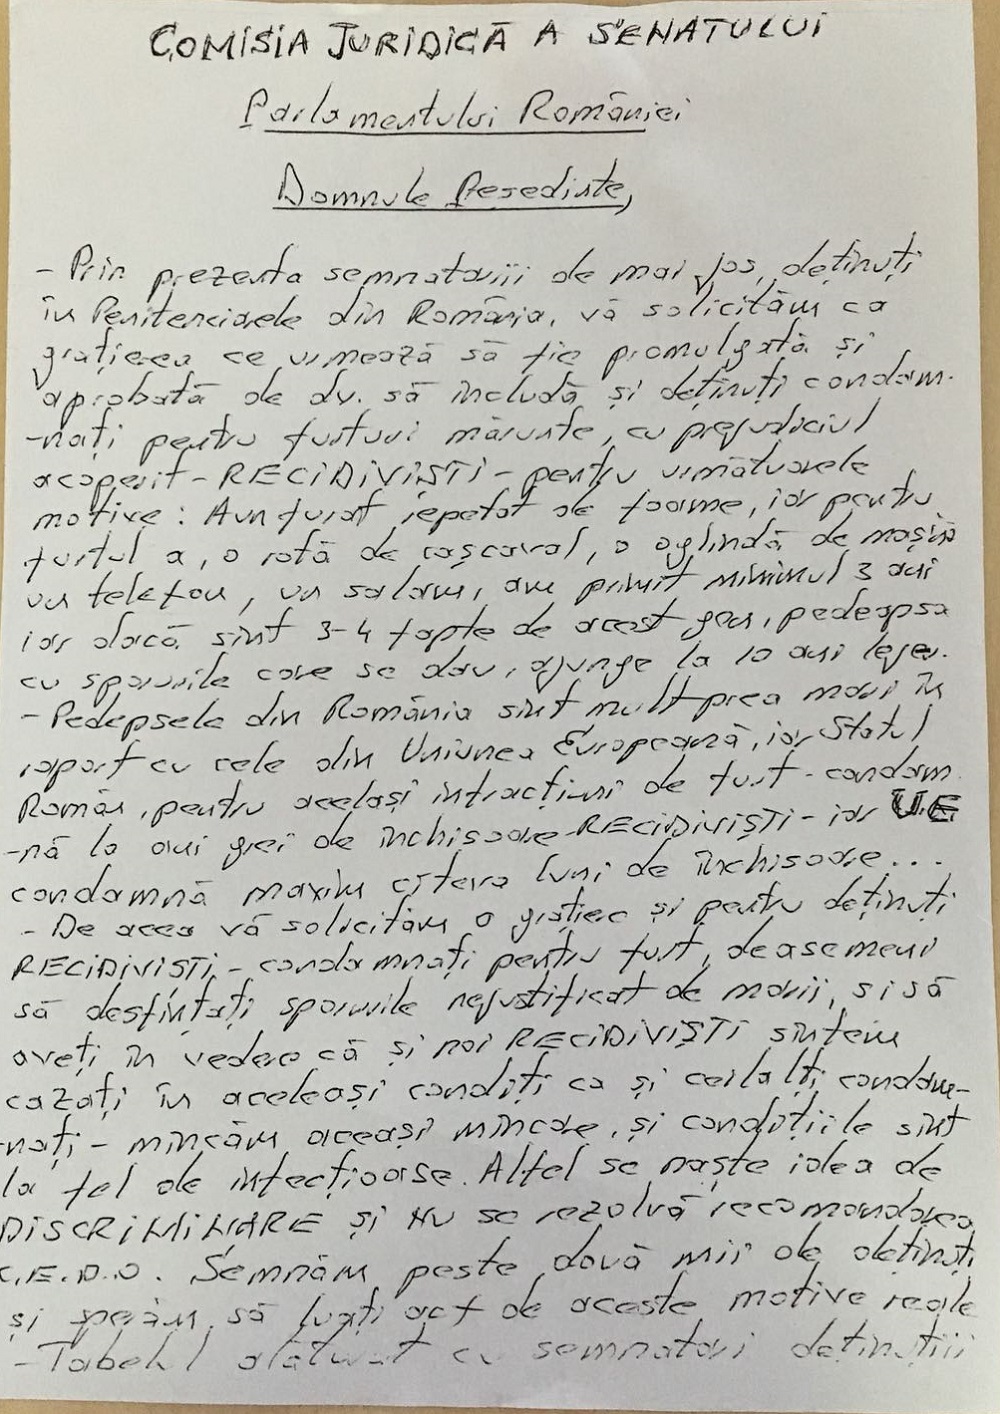 COMISIA JURIDICĂ A SENATULUI
Parlamentului României
Domnule Pesedinte,
- Prin prezenta semnatarii de mai jos, deținuți
în Penitenciarele din România, vă solicităm ca
grațierea ce urmează să fie promulgată și
aprobată de dv. să includă și deținuți condam-
-nați pentru furturi mărunte, cu prejudiciul
acoperit - RECIDIVIȘTI - pentru următoarele
motive: Am furat repetat de foame, iar pentru
furtul a, o roată de cașcaval, o oglindă de mașină
un telefon, un salam, am primit minimul 3 ani
iar dacă sînt 3-4 fapte de acest gen, pedeapsa
cu sporurile care se dau, ajunge la 10 ani lejer.
- Pedepsele din România sînt mult prea mari în
raport cu cele din Uniunea Europeană, iar Statul
Român, pentru același infracțiuni de furt - condam
-nă la ani grei de închisoare - RECIDIVIȘTI - iar UE
condamnă maxim cîteva luni de închisoare...
- De acea vă solicităm o grațiere și pentru deținuți
RECIDIVIȘTI, - condamnați pentru furt, de asemeni
să desfințați sporurile nejustificat de marii, si să
aveți în vedere că și noi RECIDIVIȘTI sîntem
cazați în aceleași condiți ca și ceilalți condam-
-nați - mîncăm aceași mîncare, și condițiile sînt
la fel de infecțioase. Altfel se naște idea de
DISCRIMINARE și NU se rezolvă recomandarea
C.E.D.O. Semnăm peste două mii de deținuți
și sperăm să luați act de aceste motive reale
- Tabelul alăturat cu semnatari deținuții